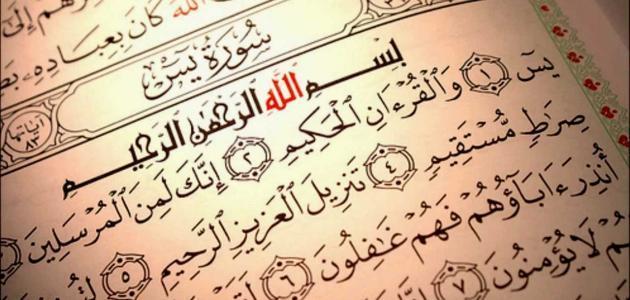 إِلَىٰ
ٱللَّهَ كَانَ بِعِبَادِهِۦ
سُورَةُ يسٓ
آياتها ٨٣
بِسْمِ ٱللَّهِ ٱلرَّحْمَٰنِ ٱلرَّحِيمِ
يسٓ ١ وَٱلْقُرْءَانِ ٱلْحَكِيمِ ٢ إِنَّكَ لَمِنَ ٱلْمُرْسَلِينَ
صِرَٰطٍ مُّسْتَقِيمٍ ٤ تَنزِيلَ ٱلْعَزِيزِ ٱلرَّحِيمِ ٥
أُنذِرَ ءَابَآؤُهُمْ فَهُمْ غَٰفِلُونَ ٦ لَقَدْ
لَا يُؤْمِنُونَ ٧